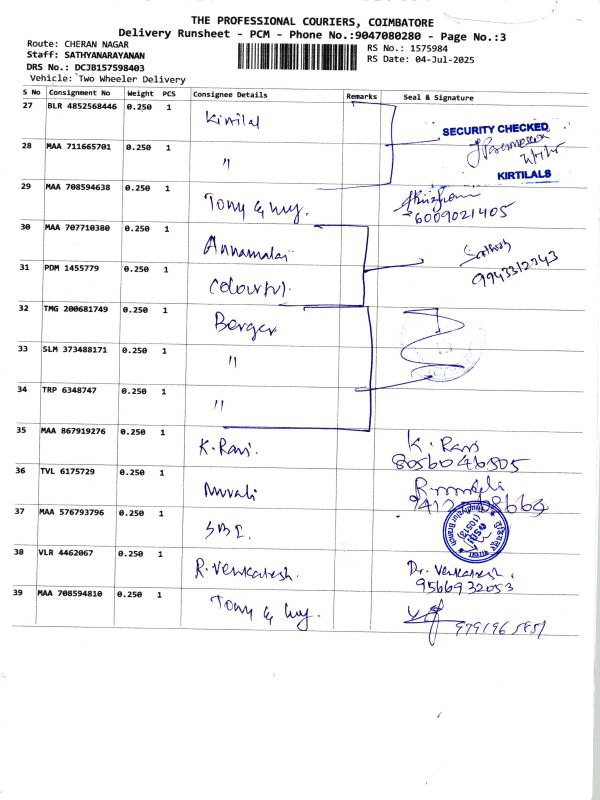 THE PROFESSIONAL COURIERS, COIMBATORE
Delivery Runsheet - PCM - Phone No.:9047080280 - Page No.:3
Route: CHERAN NAGAR
RS No.: 1575984
Staff: SATHYANARAYANAN
RS Date: 04-Jul-2025
DRS No.: DCJB157598403
Vehicle: Two Wheeler Delivery
S No Consignment No Weight PCS Consignee Details Remarks Seal & Signature
27 BLR 4852568446 0.250 1 Kirtilal
SECURITY CHECKED
28 MAA 711665701 0.250 1 "
KIRTILALS
29 MAA 708594638 0.250 1 Tony & Guy.
6009021405
30 MAA 707710380 0.250 1 Annamalai
31 PDM 1455779 0.250 1 Colourful.
9943312343
32 TMG 200681749 0.250 1 Berger
33 SLM 373488171 0.250 1 "
34 TRP 6348747 0.250 1 "
35 MAA 867919276 0.250 1 K. Ravi. K. Ravi
8056046805
36 TVL 6175729 0.250 1
37 MAA 576793796 0.250 1 SBI.
38 VLR 4462067 0.250 1 R. Venkatesh. Dr. Venkatesh.
9566932053
39 MAA 708594810 0.250 1 Tony & Guy.